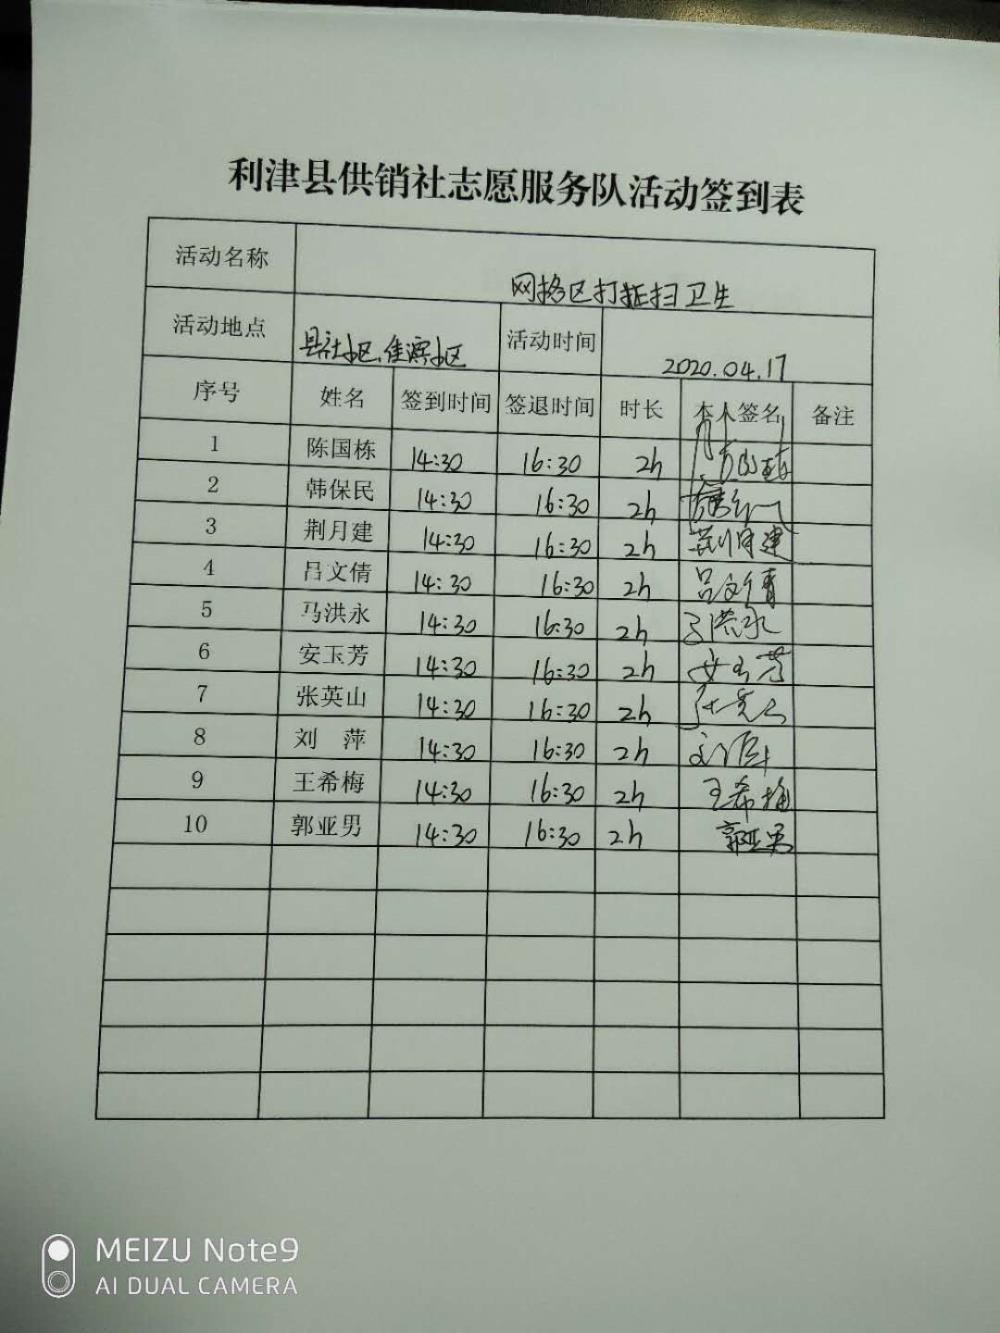 利津县供销社志愿服务队活动签到表
活动名称 网格区打扫卫生
活动地点 县社小区、佳滨小区 活动时间 2020.04.17
序号 姓名 签到时间 签退时间 时长 本人签名 备注
1 陈国栋 14:30 16:30 2h
2 韩保民 14:30 16:30 2h
3 荆月建 14:30 16:30 2h 荆月建
4 吕文倩 14:30 16:30 2h 吕文倩
5 马洪永 14:30 16:30 2h 马洪永
6 安玉芳 14:30 16:30 2h 安玉芳
7 张英山 14:30 16:30 2h
8 刘 萍 14:30 16:30 2h 刘萍
9 王希梅 14:30 16:30 2h 王希梅
10 郭亚男 14:30 16:30 2h 郭亚男
MEIZU Note9
AI DUAL CAMERA